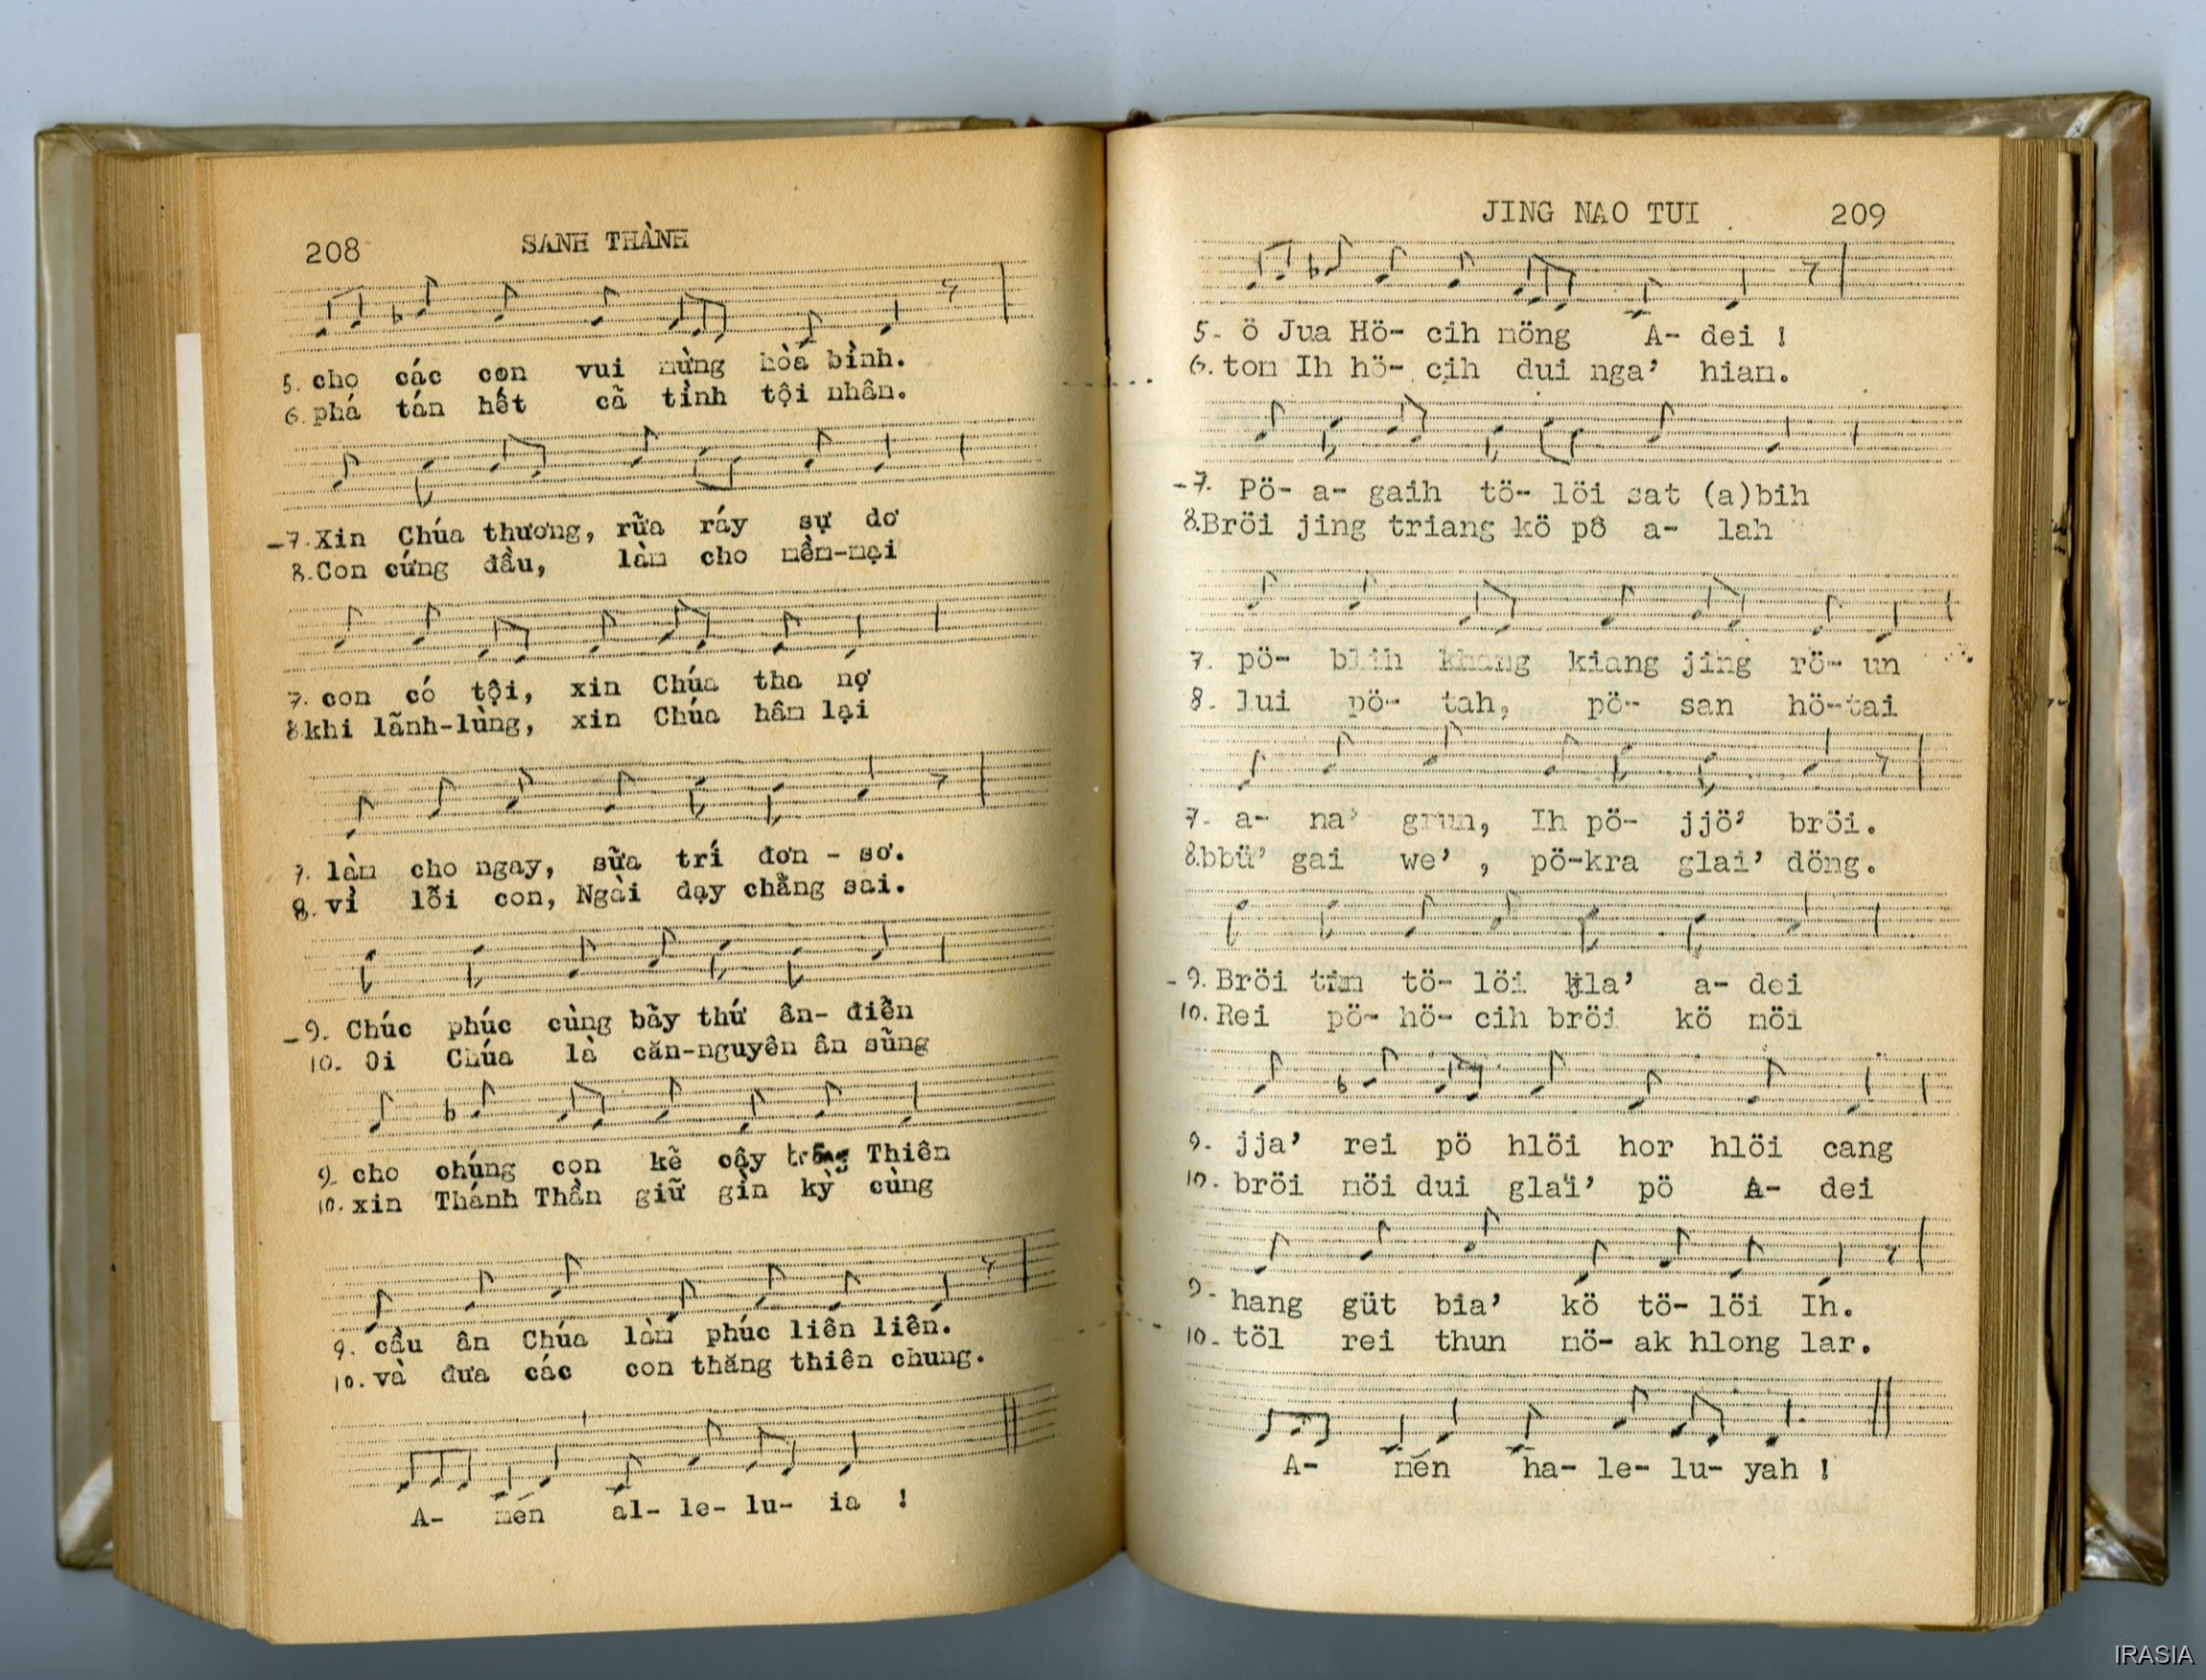 208 SANH THÀNH
5. cho các con vui mừng hòa bình.
6. phá tán hết cã tình tội nhân.
-7. Xin Chúa thương, rữa ráy sự dơ
8. Con cứng đầu, làm cho mềm-mại
7. con có tội, xin Chúa tha nợ
8. khi lãnh-lùng, xin Chúa hâm lại
7. làm cho ngay, sữa trí đơn - sơ.
8. vì lỗi con, Ngài dạy chẳng sai.
-9. Chúc phúc cùng bãy thứ ân- điển
10. Ơi Chúa là căn-nguyên ân sũng
9- cho chúng con kẽ cậy trông Thiên
10. xin Thánh Thần giữ gìn kỳ cùng
9. cầu ân Chúa làm phúc liên liên.
10. và đưa các con thăng thiên chung.
A- mén al- le- lu- ia !
JING NAO TUI 209
5- ö Jua Hö- cih möng A- dei !
6. tom Ih hö- cih dui nga’ hiam.
-7. Pö- a- gaih tö- löi sat (a)bih
8. Bröi jing triang kö pô a- lah
7. pö- blih khang kiang jing rö- un
8. lui pö- tah, pö- san hö-tai
7- a- na’ grun, Ih pö- jjö’ bröi.
8. bbü’ gai we’ , pö-kra glai’ döng.
-9. Bröi tö- löi a- dei
10. Rei pö- hö- cih bröi kö möi
9- jja’ rei pö hlöi hor hlöi cang
10. bröi möi dui glai’ pö A- dei
9- hang güt bia’ kö tö- löi Ih.
10- töl rei thun mö- ak hlong lar.
A- mén ha- le- lu- yah !
IRASIA